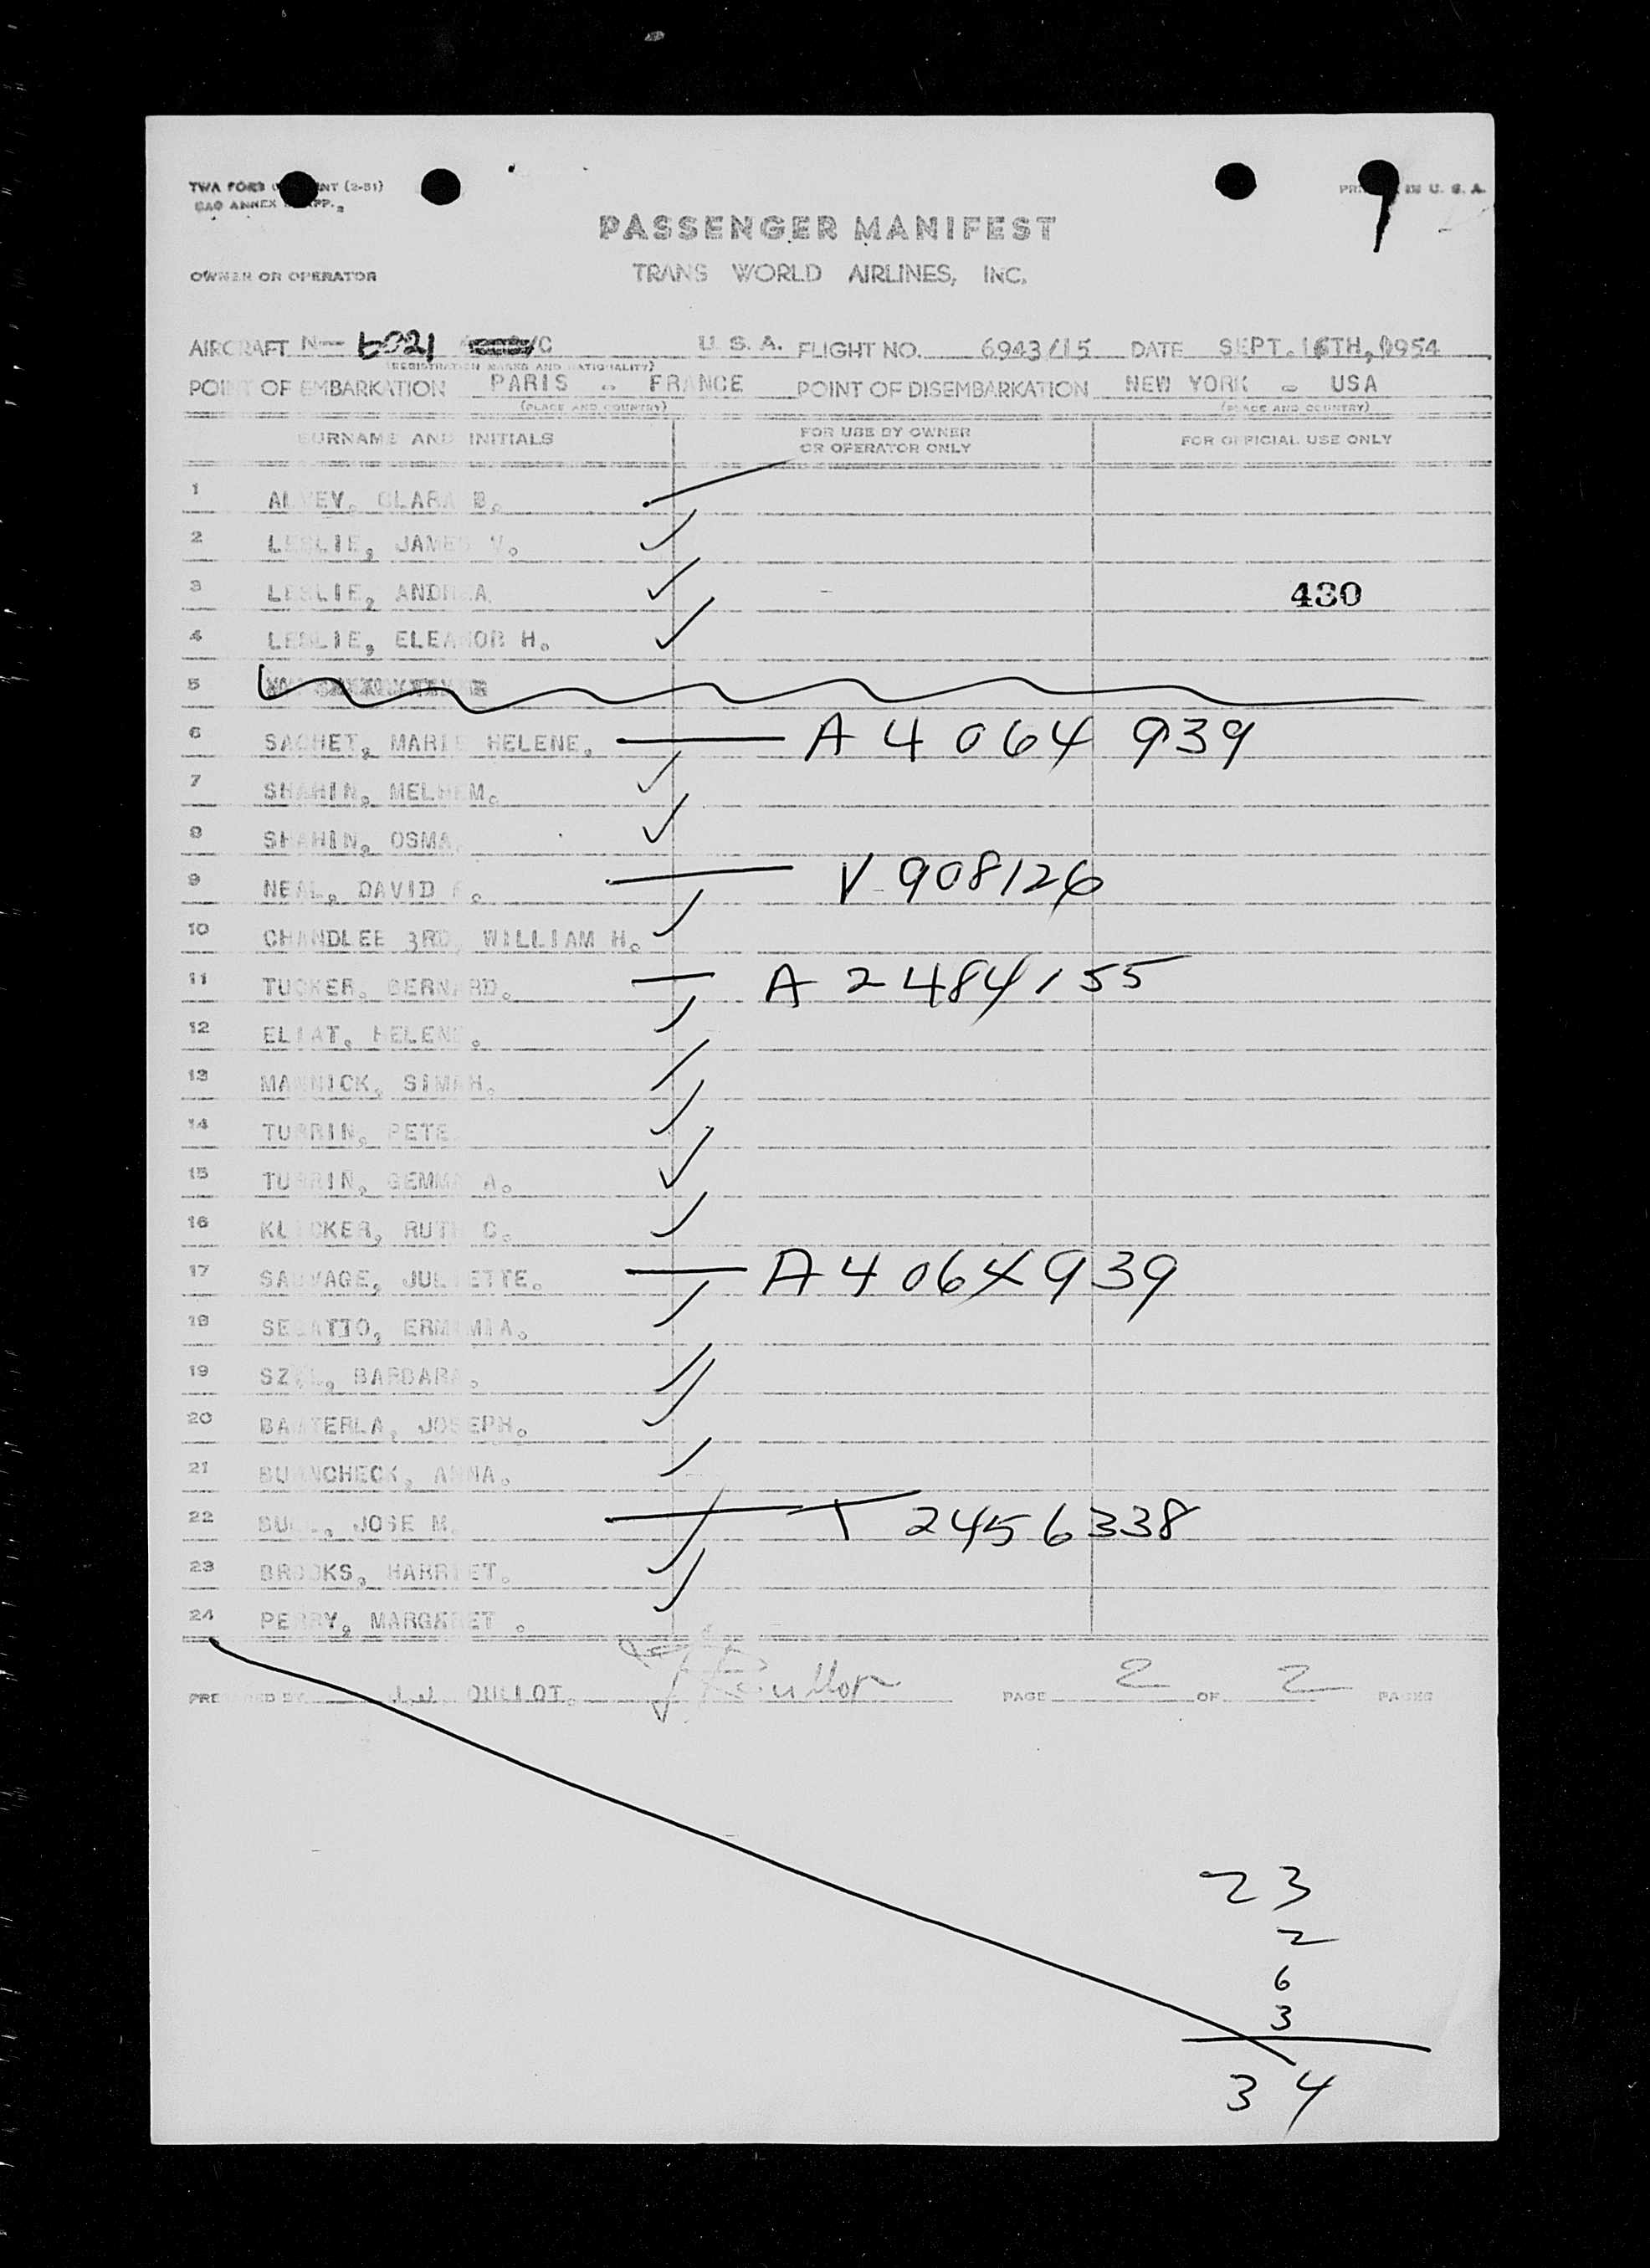 PASSENGER MANIFEST
OWNER OR OPERATOR TRANS WORLD AIRLINES, INC.
AIRCRAFT N-- 6021 /C U. S. A. FLIGHT NO. 6943/15 DATE SEPT. 16TH,
(REGISTRATION MARKS AND NATIONALITY)
POINT OF EMBARKATION PARIS - FRANCE POINT OF DISEMBARKATION NEW YORK - USA
(PLACE AND COUNTRY) (PLACE AND COUNTRY)
SURNAME AND INITIALS FOR USE BY OWNER OR OPERATOR ONLY FOR OFFICIAL USE ONLY
1 CLARA B.
2 LESLIE, JAMES V.
3 LESLIE, ANDREA 430
4 LESLIE, ELEANOR H.
5
6 SACHET, MARIE HELENE. A 4064 939
7 SHAHIN, MELHEM.
8 SHAHIN, OSMA.
9 NEAL, DAVID V 908126
10 CHANDLEE 3RD, WILLIAM H.
11 TUCKER, BERNARD. A 2484155
12 HELENE.
13 MANNICK, SIMAH.
14 PETE
15 GEMMA A.
16 RUTH C.
17 SAUVAGE, JULIETTE. A 4064939
18
19 BARBARA.
20 JOSEPH.
21 ANNA.
22 JOSE M. T 2456338
23 BROOKS, HARRIET.
24 PERRY, MARGARET .
PREPARED BY J.J. PAGE 2 OF 2 PAGES
23
2
6
3
34